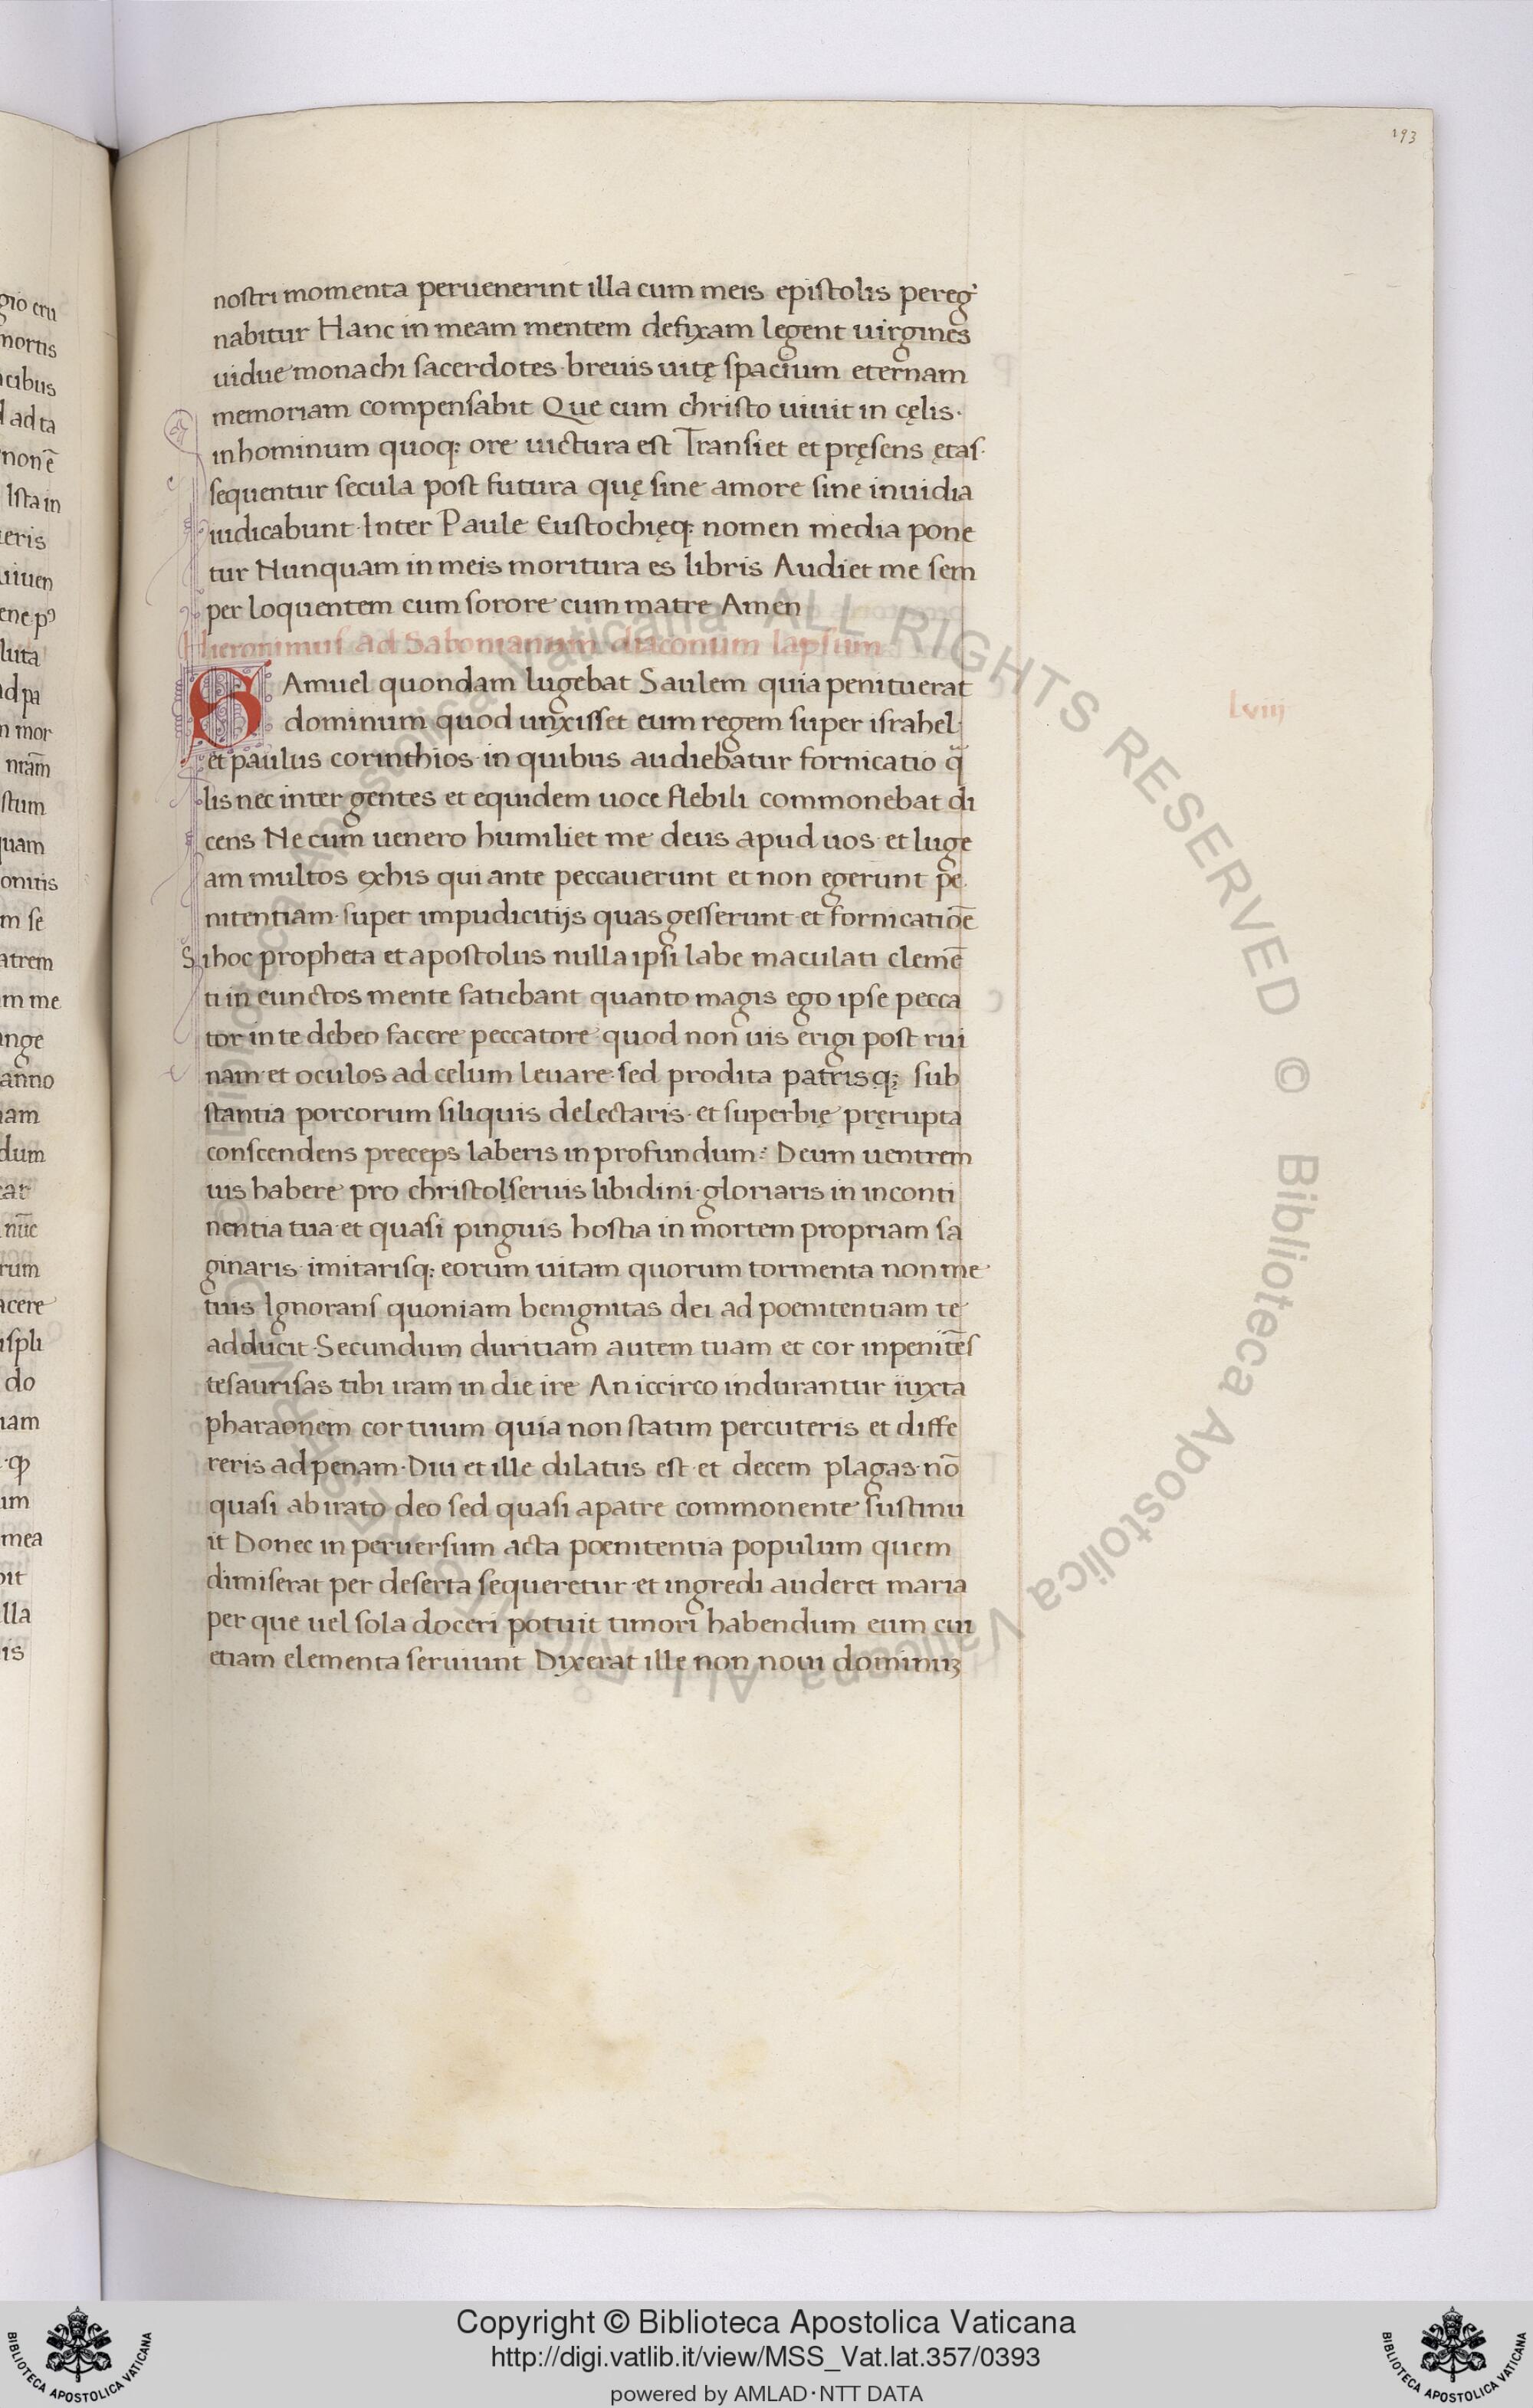 193
nostri momenta peruenerint illa cum meis epistolis peregͥ
nabitur Hanc in meam mentem defixam legent uirgines
uidue monachi sacerdotes · breuis uitę spacium eternam
memoriam compensabit Que cum christo uiuit in cęlis ·
in hominum quoq; ore uictura est Transiet et pręsens ętas ·
sequentur secula post futura quę sine amore sine inuidia
iudicabunt · Inter Paule Eustochięq; nomen media pone
tur Nunquam in meis moritura es libris Audiet me sem
per loquentem cum sorore cum matre Amen
Hieronimus ad Sabonianum diaconum lapsum
SAmuel quondam lugebat Saulem quia penituerat
dominum quod unxisset eum regem super israhel ·
et paulus corinthios · in quibus audiebatur fornicatio q̃
lis nec inter gentes et equidem uoce flebili commonebat di
cens Ne cum uenero humiliet me deus apud uos · et luge
am multos ex his qui ante peccauerunt et non egerunt pe
nitentiam · super impudicitijs quas gesserunt · et fornicatiõe
Si hoc propheta et apostolus nulla ipsi labe maculati clemẽ
ti in cunctos mente fatiebant quanto magis ego ipse pecca
tor in te debeo facere peccatore · quod non uis erigi post rui
nam · et oculos ad celum leuare · sed prodita patrisq; sub
stantia porcorum siliquis delectaris · et superbię pręrupta
conscendens preceps laberis in profundum : Deum uentrem
uis habere pro christo seruis libidini · gloriaris in inconti
nentia tua · et quasi pinguis hostia in mortem propriam sa
ginaris · imitarisq; eorum uitam quorum tormenta non me
tuis Ignorans quoniam benignitas dei ad poenitentiam te
adducit · Secundum duritiam autem tuam et cor inpenitẽs
tesaurisas tibi iram in die ire An iccirco indurantur iuxta
pharaonem cor tuum quia non statim percuteris et diffe
reris ad penam · Diu et ille dilatus est · et decem plagas · nõ
quasi ab irato deo sed quasi a patre commonente sustinu
it Donec in peruersum acta poenitentia populum quem
dimiserat per deserta sequeretur · et ingredi auderet maria
per que uel sola doceri potuit timori habendum eum cui
etiam elementa seruiunt Dixerat ille non noui dominuꝫ
Lviij
gio cru
mortis
cibus
d ad ta
non ẽ
Ista in
eris
uiuen
luta
ad pa
n mor
stum
quam
onitis
m se
atrem
m me
ange
anno
iam
dum
rum
acere
ispli
do
iam
um
mea
lla
is
© Biblioteca Apostolica Vaticana ALL RIGHTS RESERVED © Biblioteca Apostolica Vaticana ALL RIGHTS RESERVED
BIBLIOTECA APOSTOLICA VATICANA
Copyright © Biblioteca Apostolica Vaticana
http://digi.vatlib.it/view/MSS_Vat.lat.357/0393
powered by AMLAD · NTT DATA
BIBLIOTECA APOSTOLICA VATICANA